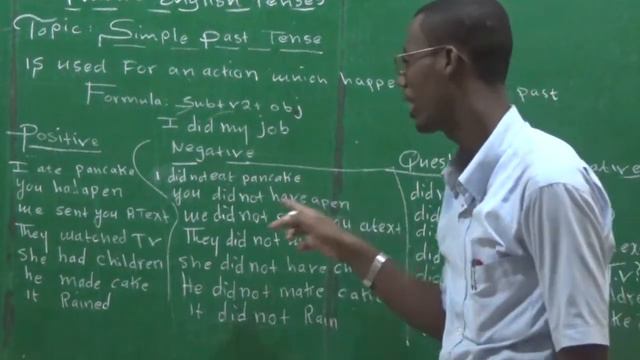 English Tenses
Topic: Simple Past Tense
is used For an action which happe past
Formula: Sub+v2+obj
I did my job
Positive
I ate pancake
You had apen
We sent you AText
They watched TV
She had children
He made cake
It Rained
Negative
I didnoteat pancake
you did not have apen
We did not you atext
They did not
She did not have ch
He did not make cake
It did not Rain
Ques ative
did
did
di
di